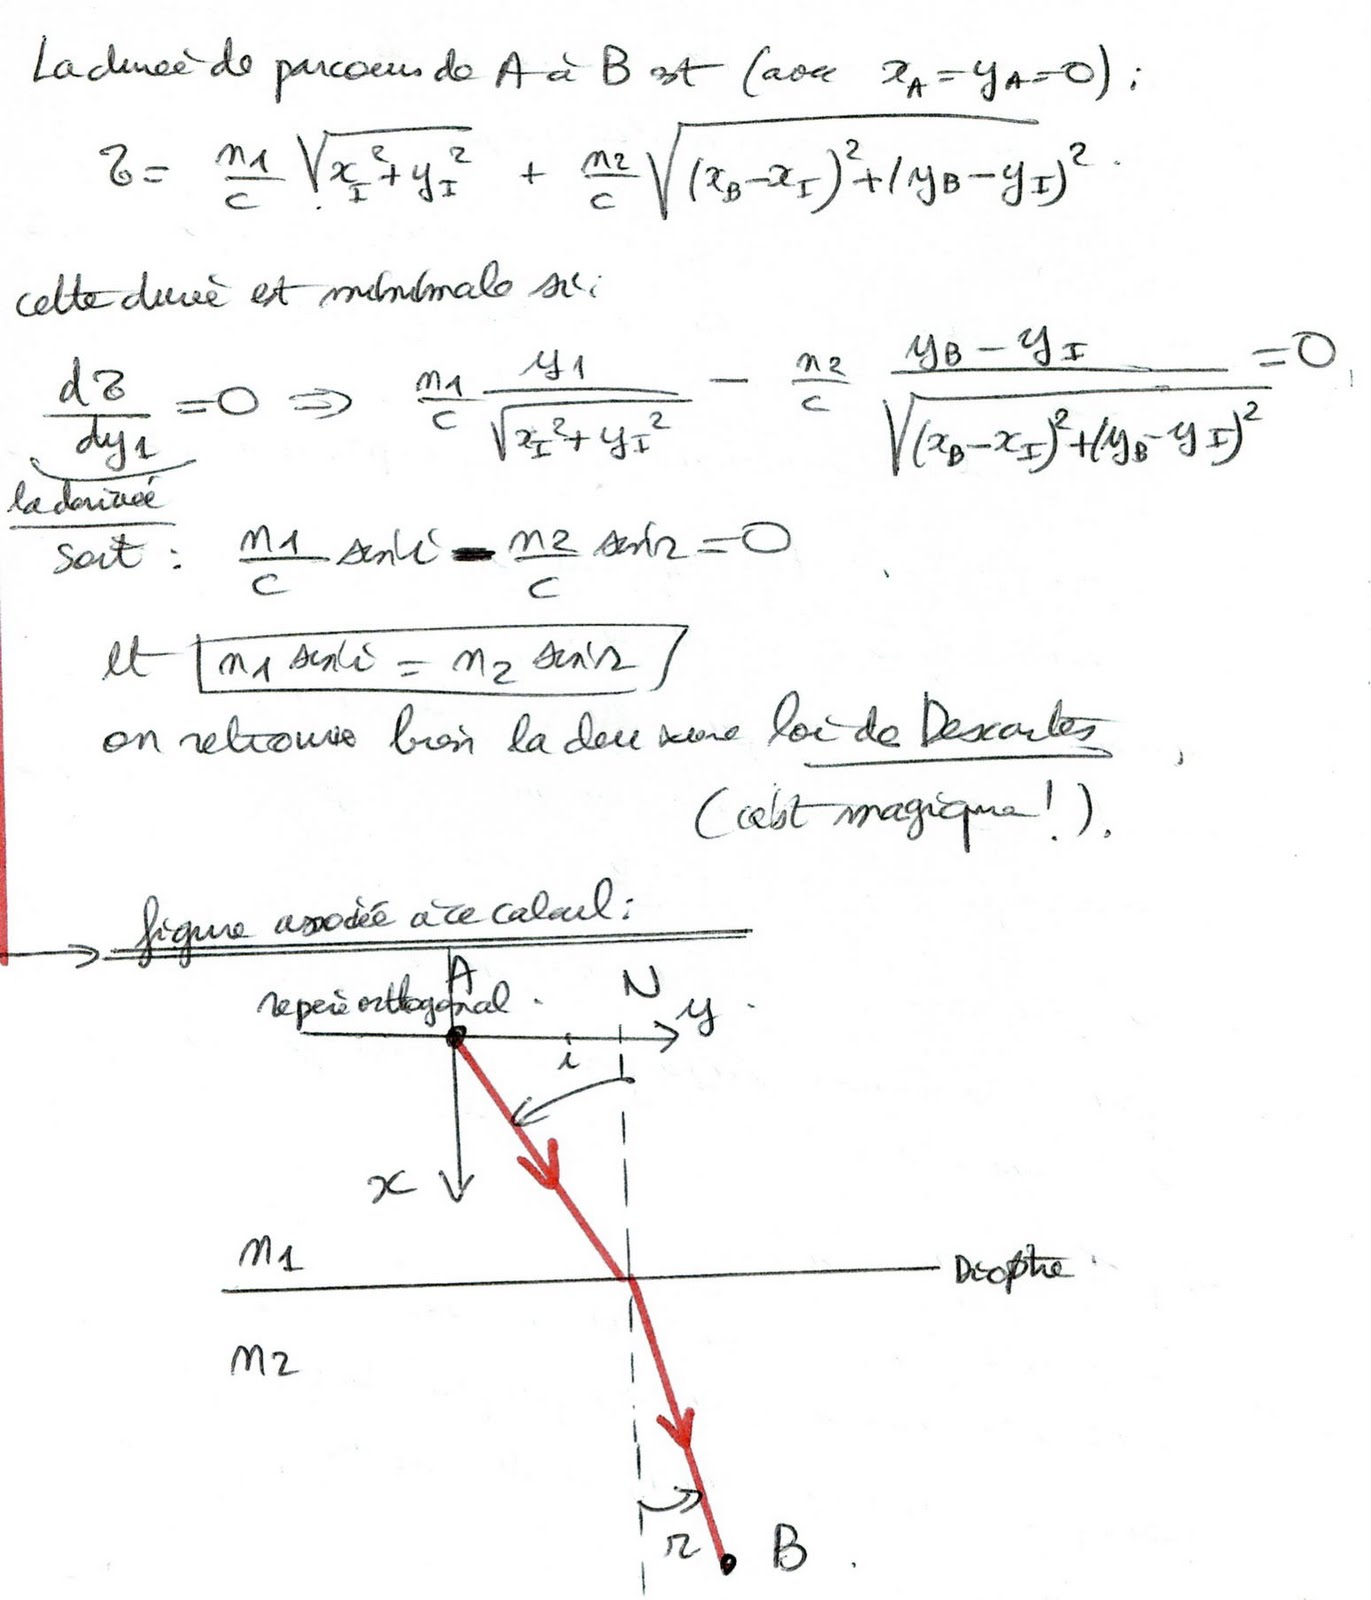 La durée de parcours de A à B est (avec x_A = y_A = 0) :
τ = n1/c √(x_I² + y_I²) + n2/c √((x_B − x_I)² + (y_B − y_I)²
cette durée est minimale si :
dτ/dy1 = 0 ⇒ n1/c y1/√(x_I² + y_I²) − n2/c (y_B − y_I)/√((x_B − x_I)² + (y_B − y_I)²) = 0
la dérivée
soit : n1/c sin i − n2/c sin r = 0
et n1 sin i = n2 sin r
on retrouve bien la deuxième loi de Descartes
(c'est magique !).
figure associée à ce calcul :
A
N
repère orthogonal
y
i
x
n1
Dioptre
n2
r
B